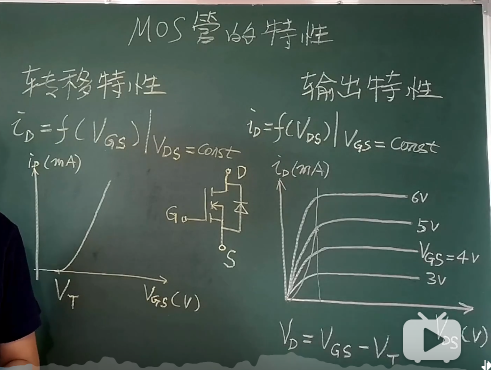 MOS管的特性
转移特性
i_D=f(V_GS)|V_DS=Const
i_D(mA)
V_T
V_GS(V)
D
G
S
输出特性
i_D=f(V_DS)|V_GS=Const
i_D(mA)
6V
5V
V_GS=4V
3V
V_DS(V)
V_D=V_GS-V_T